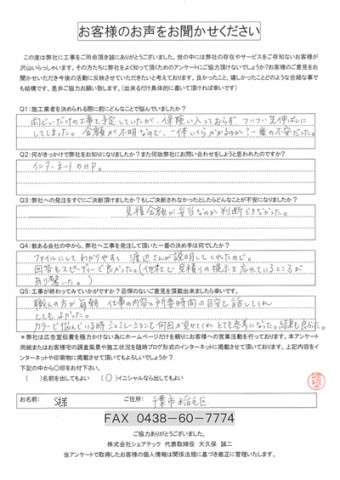 お客様のお声をお聞かせください
この度は弊社に工事をご用命頂き誠にありがとうございました。世の中には弊社の存在やサービスをご存知ないお客様が
沢山いらっしゃいます。その方たちに弊社をよく知って頂くためのアンケートにご協力頂けないでしょうか?お客様のご意見をお
聞かせいただき今後の活動に反映させていただきたいと考えております。良かったこと、嬉しかったことどのような些細な事で
も結構です。是非ご協力お願い致します。(出来るだけ具体的に書いて頂ければ幸いです)
Q1:施工業者を決められる際に前にどんなことで悩んでいましたか?
雨どいだけの工事を予定していたが、保険に入っておらず ついつい先伸ばしに
してしまった。金額が不明なので、一体いくらかかるのか?一番の不安だった。
Q2:何がきっかけで弊社をお知りになりましたか?また何故弊社にお問い合わせをしようと思われたのですか?
インターネットのHP。
Q3:弊社への発注をすぐにご決断されましたか?もしご決断されなかったとしたらどんなことが不安になりましたか?
見積金額が妥当なのか判断できなかった。
Q4:数ある会社の中から、弊社へ工事を発注して頂いた一番の決め手は何でしたか?
ファイルにしてわかりやすく 渡辺さんが説明してくれたので。
回答もスピーディーで良かった。(他社で見積りの提示を忘れているところが
あり驚いた。)
Q5:工事が終わってみていかがでしたか?忌憚のないご意見を頂戴出来ましたら幸いです。
職人の方が毎朝 仕事の内容と所要時間の目安を話してくれ
とてもよかった。
カラーで悩んでいる時 シュミレーションを何回か見せてくれ とても参考になった。結果も良かった。
*弊社は広告宣伝費を極力かけない為にホームページだけを頼りにお客様への営業活動を行っております。本アンケート
用紙またはお客様宅の調査風景や施工状況を随時ブログ形式でのインターネットに掲載させて頂いております。上記内容をイ
ンターネットや印刷物に掲載させて頂いてもよろしいでしょうか?
下記の中から○印をお付け下さい。
( )名前を出してもよい (○)イニシャルなら出してもよい
お名前: S様 ご住所: 千葉市稲毛区
FAX 0438-60-7774
ご協力ありがとうございました。
株式会社シェアテック 代表取締役 大久保 誠二
当アンケートで取得したお客様の個人情報は関係法規に基づき厳正に管理いたします。